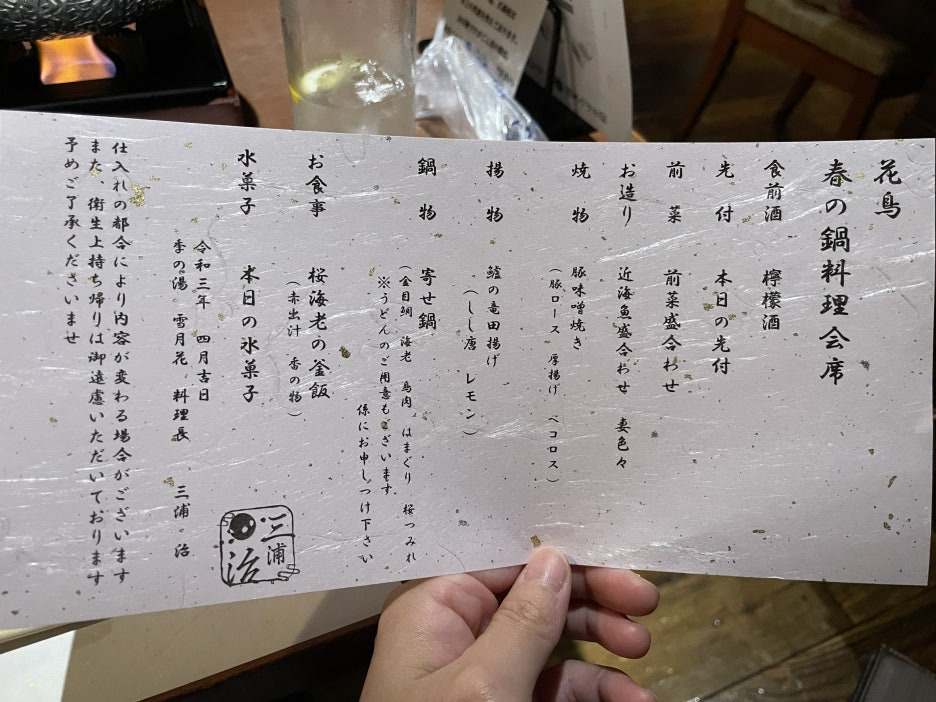 花鳥
春の鍋料理会席
食前酒 檸檬酒
先付 本日の先付
前菜 前菜盛合わせ
お造り 近海魚盛合わせ 妻色々
焼物 豚味噌焼き
(豚ロース 厚揚げ ペコロス)
揚物 鱸の竜田揚げ
(しし唐 レモン)
鍋物 寄せ鍋
(金目鯛 海老 鳥肉 はまぐり 桜つみれ
※うどんのご用意もございます
係にお申しつけ下さい
お食事 桜海老の釜飯
(赤出汁 香の物)
水菓子 本日の水菓子
令和三年 四月吉日
季の湯 雪月花 料理長 三浦 治
三浦
治
仕入れの都合により内容が変わる場合がございます
また、衛生上持ち帰りは御遠慮いただいております
予めご了承くださいませ